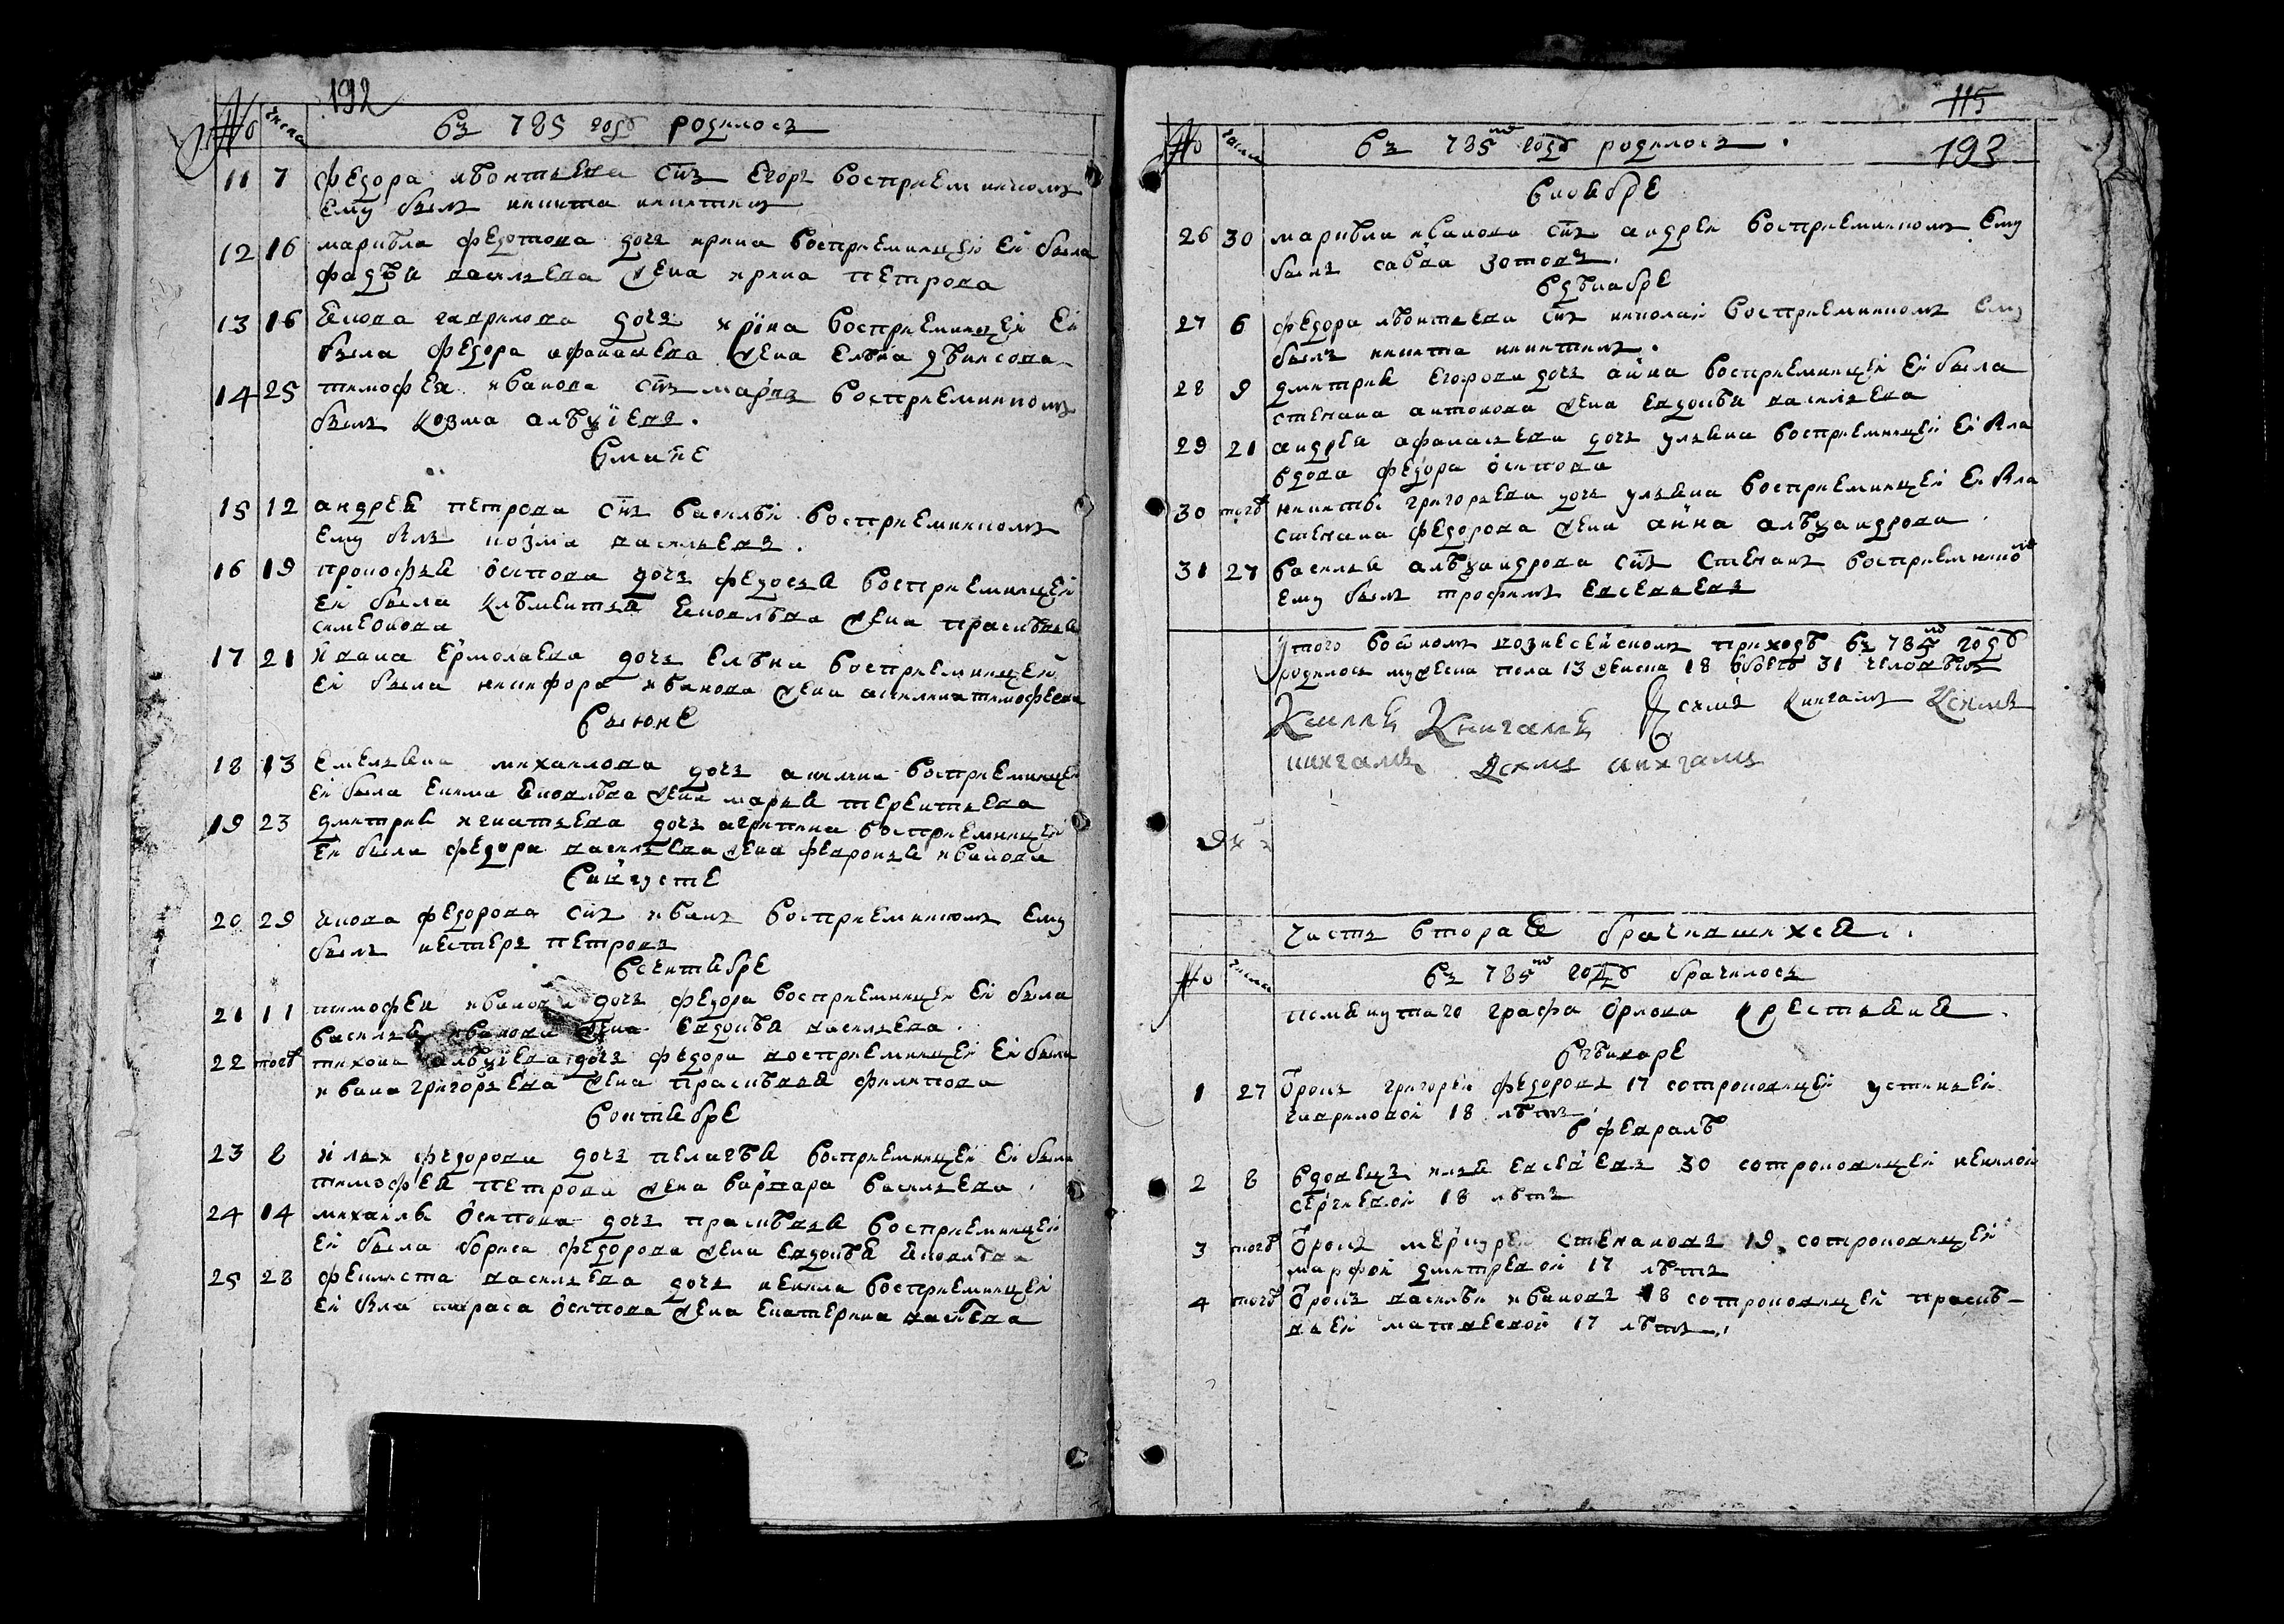 192
№ числа въ 785 годѣ родилось
11 7 федора лѣонтьева снъ егоръ восприемникомъ
ему былъ никита никитинъ
12 16 маркѣла федотова дочь ирина восприемницей ей была
фадѣя васильева жена ирина петрова
13 16 якова гаврилова дочь ирїна восприемницей ей
была федора афанасьева жена елѣна дѣнисова
14 25 тимофея иванова снъ маркъ восприемникомъ
былъ козма алѣѯїевъ.
в маие
15 12 андрея петрова снъ василѣй восприемникомъ
ему былъ козма васильевъ.
16 19 прокофья осипова дочь федосья восприемницей
ей была клѣментья яковлѣва жена прасковья
симеонова
17 21 ивана ермолаева дочь елѣна восприемницей
ей была никифора иванова жена акилина тимофеева
въ июне
18 13 емельяна михаилова дочь акилина восприемницей
ей была екима яковлѣва жена марья терентьева
19 23 дмитрия игнатьева дочь агрипина восприемницей
ей была федора васильева жена февронья иванова
в августе
20 29 якова федорова снъ иванъ восприемникомъ ему
былъ нестеръ петровъ
в сентябре
21 11 тимофея иванова дочь федора восприемницей ей была
василья иванова жена евдокѣя васильева.
22 тогѡ тихона алѣѯїева дочь федора восприемницей ей была
ивана григорьева жена прасковья филипова
в октябре
23 8 ильи федорова дочь пелагѣя восприемницей ей была
тимофея петрова жена варвара васильева
24 14 михаилы осипова дочь прасковья восприемницей
ей была бориса федорова жена евдокѣя яковлѣва
25 28 феклиста васильева дочь некила восприемницей
ей была тараса осипова жена екатерина васильева
115
№ числа въ 785мъ годѣ родилось.
193
в ноябре
26 30 маркѣла иванова снъ андрей восприемникомъ ему
былъ савва зотовъ.
в дѣкабре
27 6 федора лѣонтьева снъ николай восприемникомъ ему
былъ никита никитинъ.
28 9 дмитрия егорова дочь анна восприемницей ей была
степана антонова жена евдокѣя васильева
29 21 андрея афанасьева дочь ульяна восприемницей ей была
вдова федора осипова
30 тогѡ никиты григорьева дочь ульяна восприемницей ей была
степана федорова жена анна алѣѯандрова.
31 27 василья алѣѯандрова снъ степанъ восприемникомъ
ему былъ трофимъ евсевьевъ
итого во ономъ вознесенскомъ приходѣ въ 785мъ годѣ
родилось мужеска пола 13 женска 18 обоего 31 человѣкъ
часть вторая брачившихся.
№ числа въ 785мъ годѣ брачилось
помянутаго графа орлова крестьяня.
в гѣнваре
1 27 отрокъ григорей федоровъ 17 сотроковицей устиньей
гавриловой 18 лѣтъ
в февралѣ
2 8 вдовецъ илья евсевїевъ 30 сотроковицей некилой
сергиевой 18 лѣтъ
3 тогѡ отрокъ меркурей степановъ 19 сотроковицей
марфой дмитревой 17 лѣтъ
4 тогѡ отрокъ василѣй ивановъ 18 сотроковицей праско-
вьей матвеевой 17 лѣтъ.